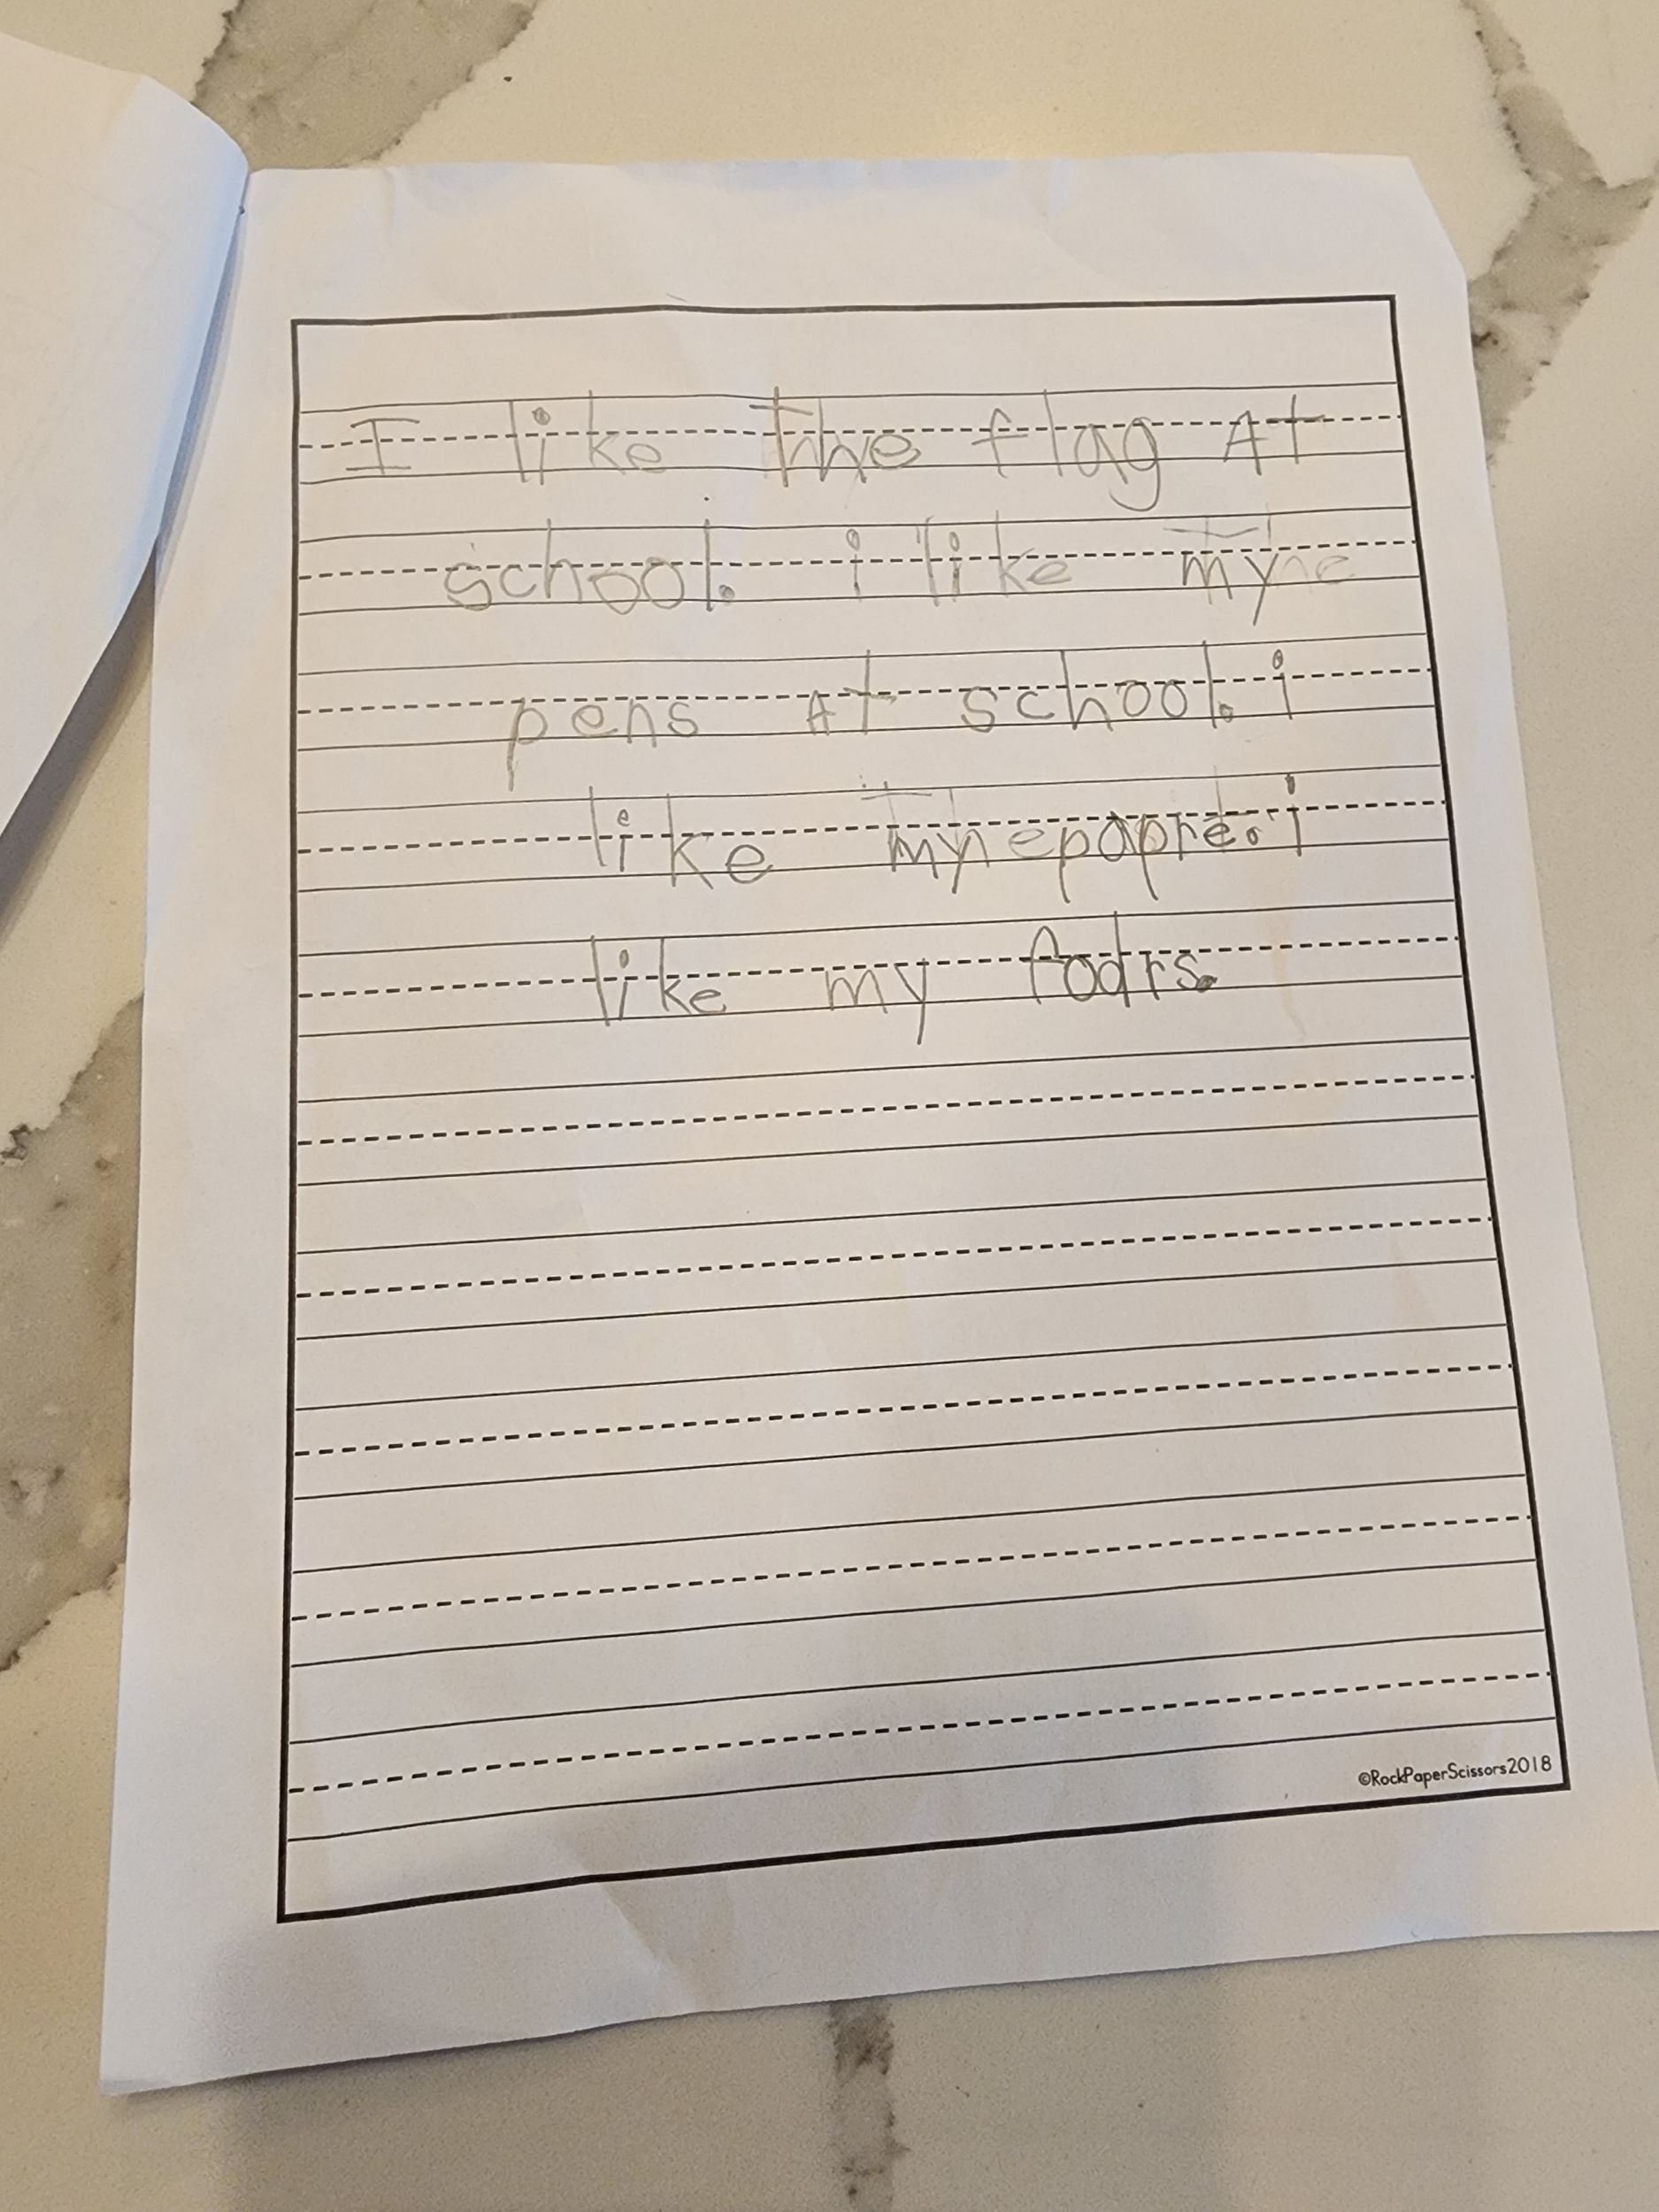 I like The flag At
school. i like my
pens At school. i
like my papre. i
like my fodrs.
©RockPaperScissors2018